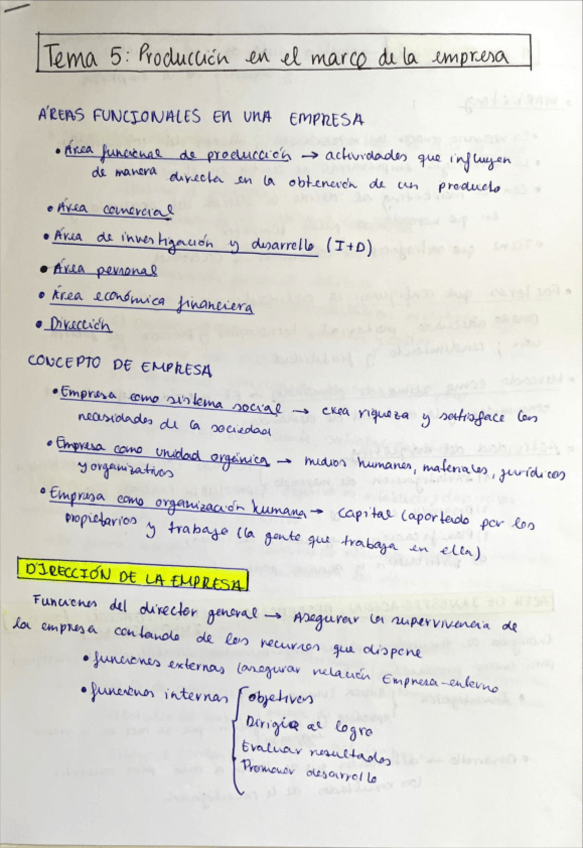 Tema 5: Producción en el marco de la empresa
ÁREAS FUNCIONALES EN UNA EMPRESA
• Área funcional de producción → actividades que influyen
de manera directa en la obtención de un producto
• Área comercial
• Área de investigación y desarrollo (I+D)
• Área personal
• Área económica financiera
• Dirección
CONCEPTO DE EMPRESA
• Empresa como sistema social → crea riqueza y satisface las
necesidades de la sociedad
• Empresa como unidad orgánica → medios humanos, materiales, jurídicos
y organizativos
• Empresa como organización humana → capital (aportado por los
propietarios y trabajo (la gente que trabaja en ella)
DIRECCIÓN DE LA EMPRESA
Funciones del director general → Asegurar la supervivencia de
la empresa contando de los recursos que dispone
• funciones externas (asegurar relación Empresa-entorno
• funciones internas { Objetivos
Dirigir al logro
Evaluar resultados
Promover desarrollo